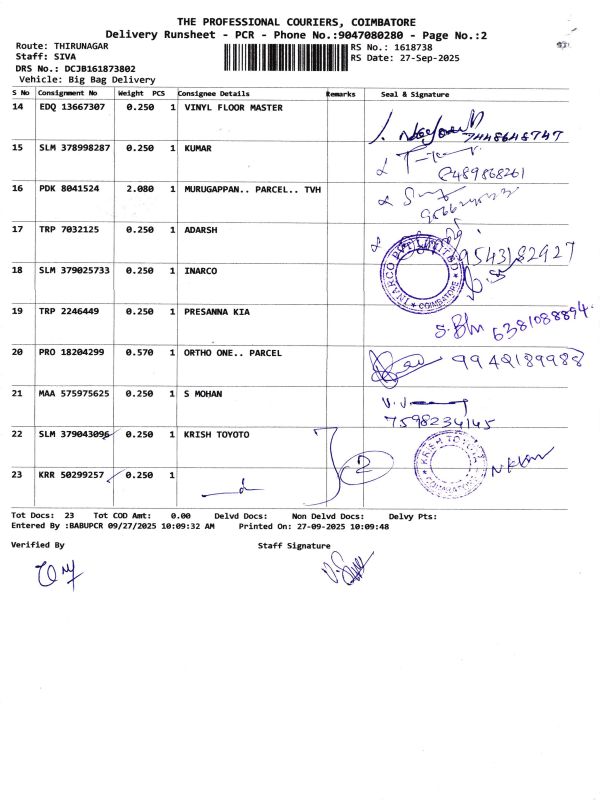 THE PROFESSIONAL COURIERS, COIMBATORE
Delivery Runsheet - PCR - Phone No.:9047080280 - Page No.:2
Route: THIRUNAGAR
RS No.: 1618738
Staff: SIVA
RS Date: 27-Sep-2025
DRS No.: DCJB161873802
Vehicle: Big Bag Delivery
S No Consignment No Weight PCS Consignee Details Remarks Seal & Signature
14 EDQ 13667307 0.250 1 VINYL FLOOR MASTER 7448648747
15 SLM 378998287 0.250 1 KUMAR 8489868261
16 PDK 8041524 2.080 1 MURUGAPPAN.. PARCEL.. TVH
17 TRP 7032125 0.250 1 ADARSH 9543182927
18 SLM 379025733 0.250 1 INARCO INARCO PVT LIMITED COIMBATORE
19 TRP 2246449 0.250 1 PRESANNA KIA 6381088894
20 PRO 18204299 0.570 1 ORTHO ONE.. PARCEL 9942189988
21 MAA 575975625 0.250 1 S MOHAN 7598234145
22 SLM 379043096 0.250 1 KRISH TOYOTO KRISH TOYOTA COIMBATORE
23 KRR 50299257 0.250 1 2
Tot Docs: 23 Tot COD Amt: 0.00 Delvd Docs: Non Delvd Docs: Delvy Pts:
Entered By :BABUPCR 09/27/2025 10:09:32 AM Printed On: 27-09-2025 10:09:48
Verified By Staff Signature